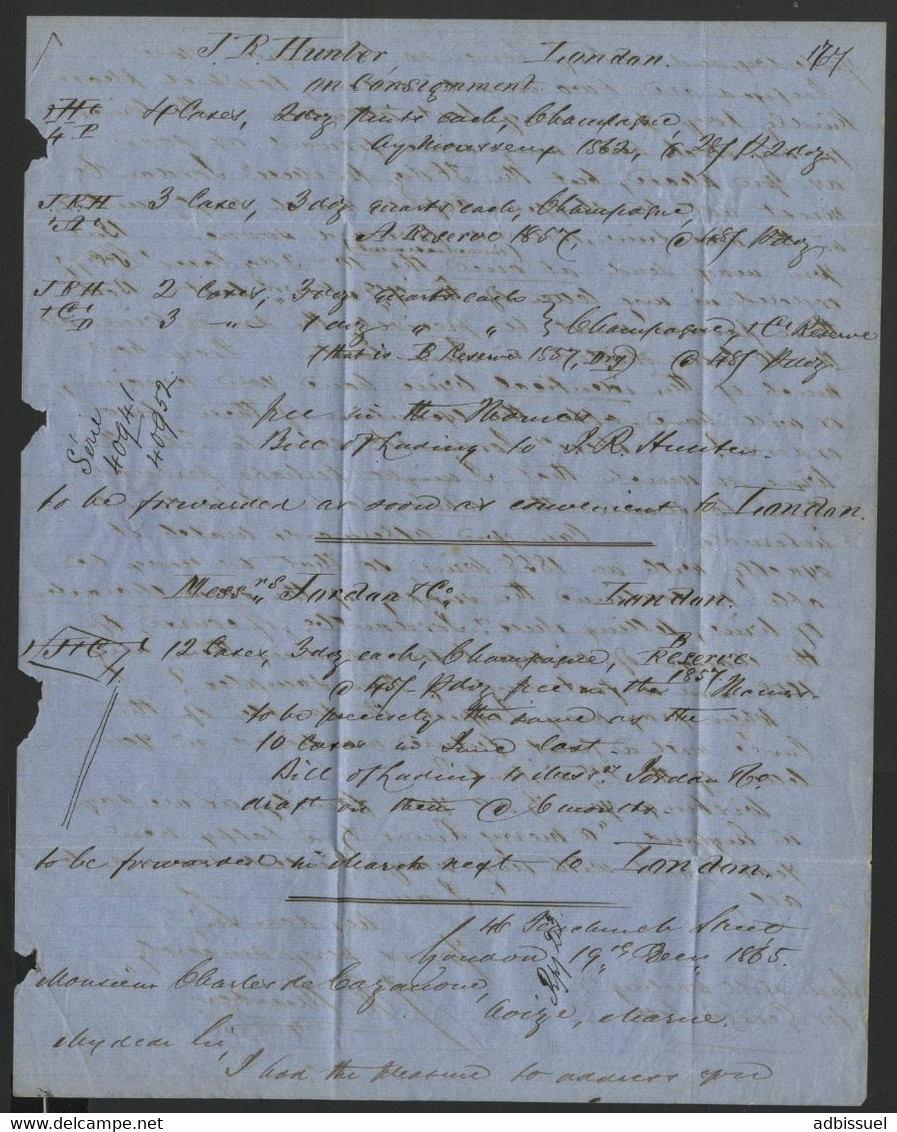 J. R. Hunter, London. 177
on Consignment.
4 Cases, 2 doz pints each, Champagne,
Ay Mousseux 1862, @ 28/ P. 2 doz
4 P
J.R.H 3 Cases, 3 doz quarts each, Champagne,
"A" A Reserve 1857, @ 45/ P doz
J R H 2 Cases, 3 doz quarts each
"C" 3 " 1 doz " " } Champagne, "C" Reserve
D
(that is B Reserve 1857, Dry) @ 45/ P doz.
Série
40941
40952
free in the Marne
Bill of Lading to J. R. Hunter.
to be forwarded as soon as convenient to London.
Mess.rs Jordan & Co London.
J & C 12 Cases, 3 doz each, Champagne, B Reserve
1857
@ 45/ P doz free in the Marne.
to be precisely the same as the
10 Cases in June last.
Bill of Lading to Mess.rs Jordan & Co.
draft on them @ 6 months
to be forwarded in March next to London.
46 Fenchurch Street
London, 19th Decr 1865.
Monsieur Charles de Cazanove,
Avize, Marne.
My dear Sir,
I had the pleasure to address you
adbissuel